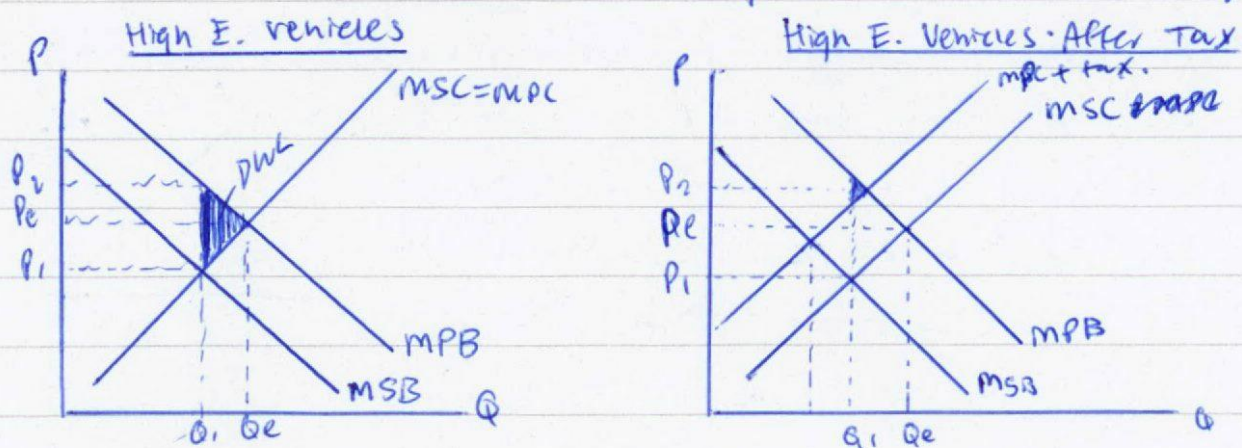 High E. Vehicles
P
MSC=MPC
DWL
P2
Pe
P1
MPB
MSB
Q
Q1 Qe
High E. Vehicles. After Tax
P
MPC + tax.
MSC
P2
Pe
P1
MPB
MSB
Q
Q1 Qe